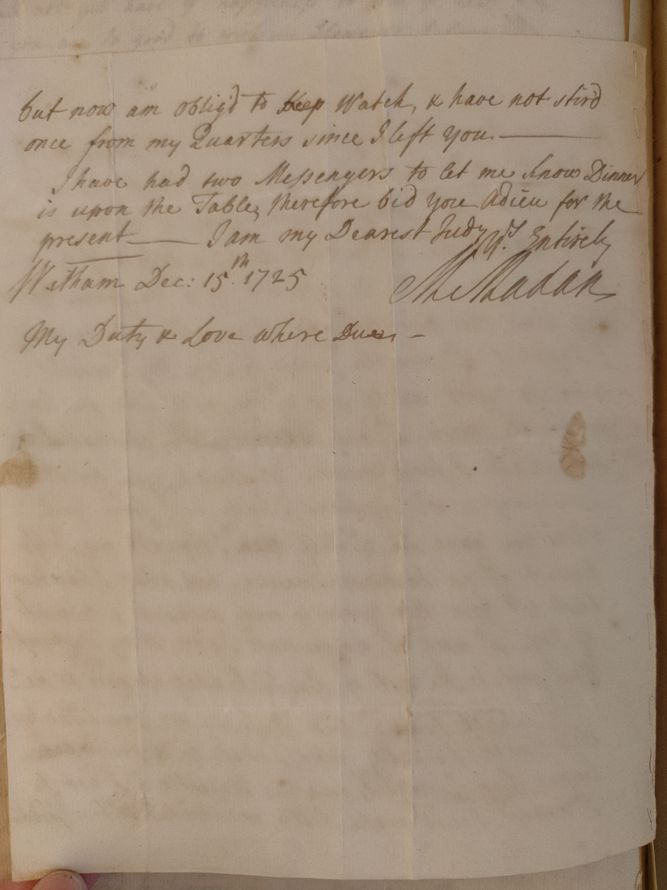 but now am obligd to keep Watch, & have not stird
once from my Quarters since I left you ———
I have had two Messengers to let me know Dinner
is upon the Table, therefore bid you Adieu for the
present —— I am my Dearest Judy yrs. Entirely
Witham Dec: 15th. 1725
M Madan
My Duty & Love where Due, —